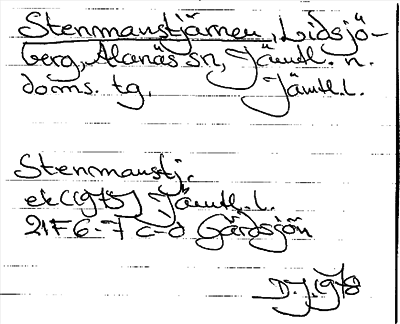 Stenmanstjärnen, Lidsjö-
berg, Alanäs sn, Jämtl. n.
doms. tg, Jämtl.l.
Stenmanstj.
ek(1975) Jämtl.l.
21F 6-7 c-d Gärdsjön
D.J. 1978